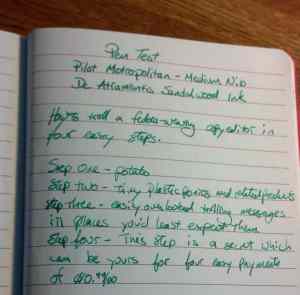 Pen Test
Pilot Metropolitan - Medium Nib
De Atramentis Sandalwood Ink
How to troll a fedora-wearing copyeditor in
four easy steps.
Step One - potato
Step two - Tiny plastic ponies and related products
Step three - easily overlooked trolling messages
in places you'd least expect them
Step four - This step is a secret which
can be yours for four easy payments
of $10.99/00